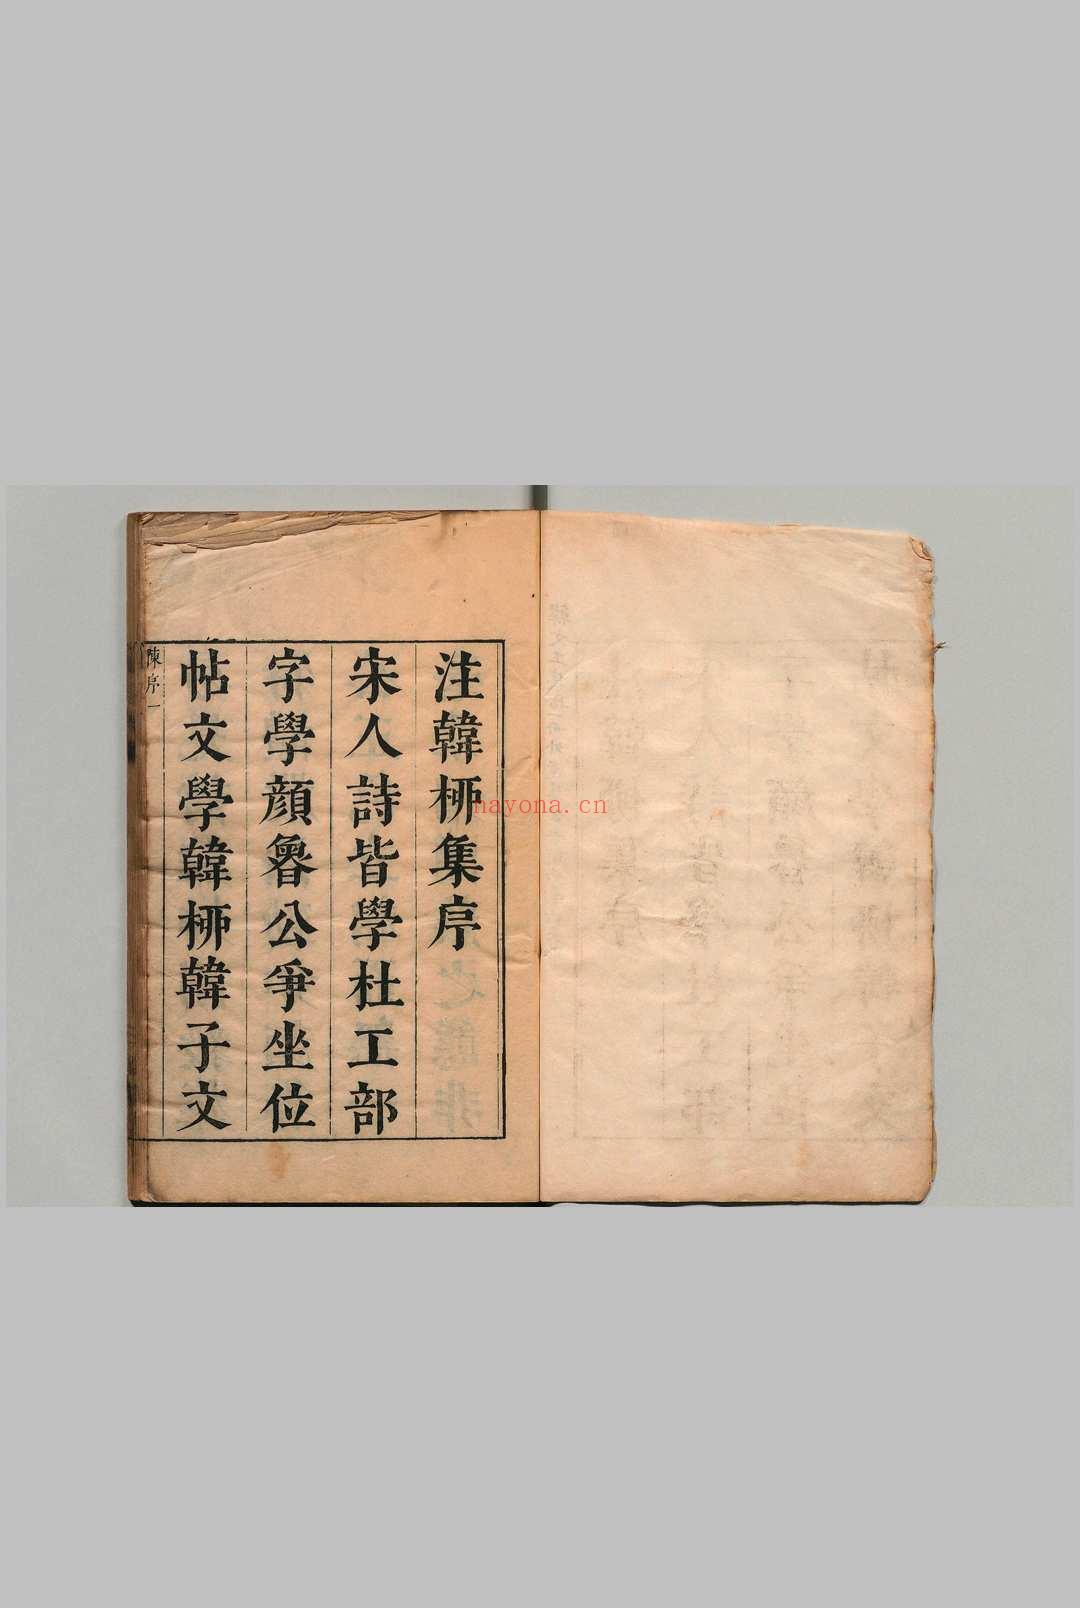 注韓栁集序
宋人詩皆學杜工部
字學顔魯公爭坐位
帖文學韓栁韓子文
陳序一
nayona.cn